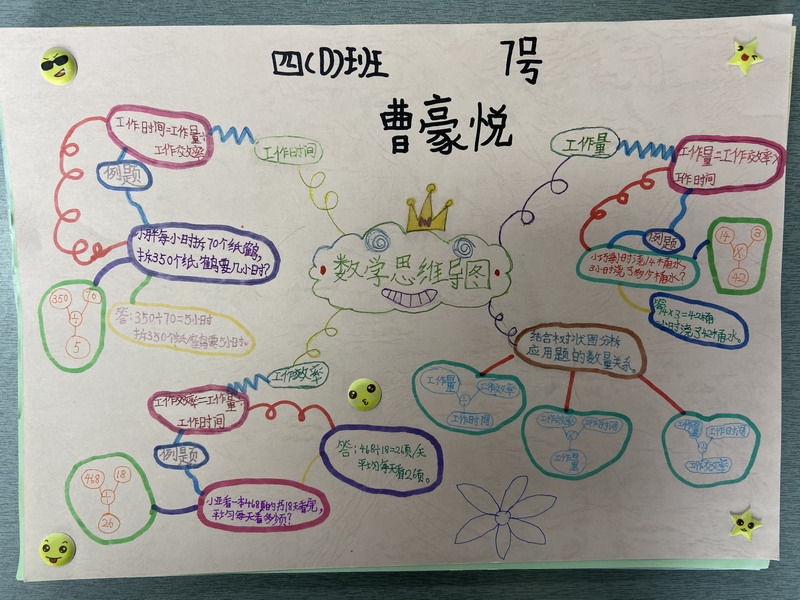 四(1)班
7号
曹豪悦
数学思维导图
工作时间
工作时间=工作量÷
工作效率
例题
小胖每小时折70个纸鹤,
折350个纸鹤要几小时?
350 70
÷
5
答:350÷70=5小时
折350个纸鹤要5小时。
工作量
工作量=工作效率×
工作时间
例题
小巧每小时浇14桶水,
3小时浇了多少桶水?
14 3
×
42
答14×3=42桶
3小时浇了42桶水。
工作效率
工作效率=工作量÷
工作时间
例题
小亚看一本468页的书18天看完,
平均每天看多少页?
468 18
÷
26
答:468÷18=26页/天
平均每天看26页。
结合树状图分析
应用题的数量关系。
工作量 工作效率
÷
工作时间
工作效率 工作时间
×
工作量
工作量 工作时间
÷
工作效率